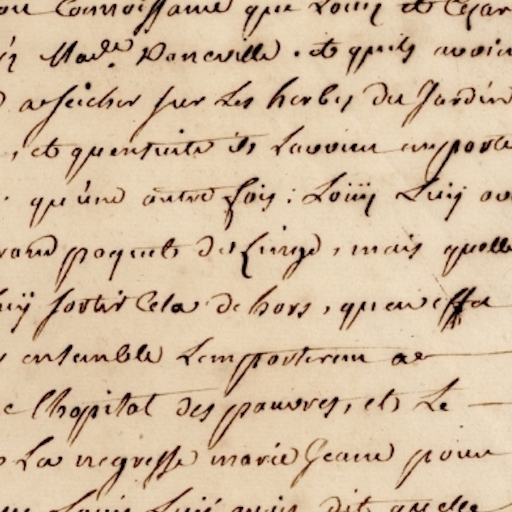 Connoissance que Louis et Cesar
Made. Vaneville . et quils avoi
a seicher sur Les herbes du Jardin
, et quensuite ils Lavoien emporte
. qu'une autre fois ; Loüy Luÿ av
rand paquet de Linge, mais quelle
luÿ sortit Cela dehors, quen effa
ensemble Lemporteren ae
e lhopital des pauvres, et Le
La negresse marie Jeane pour
Louis Luÿ avoir dit quelle